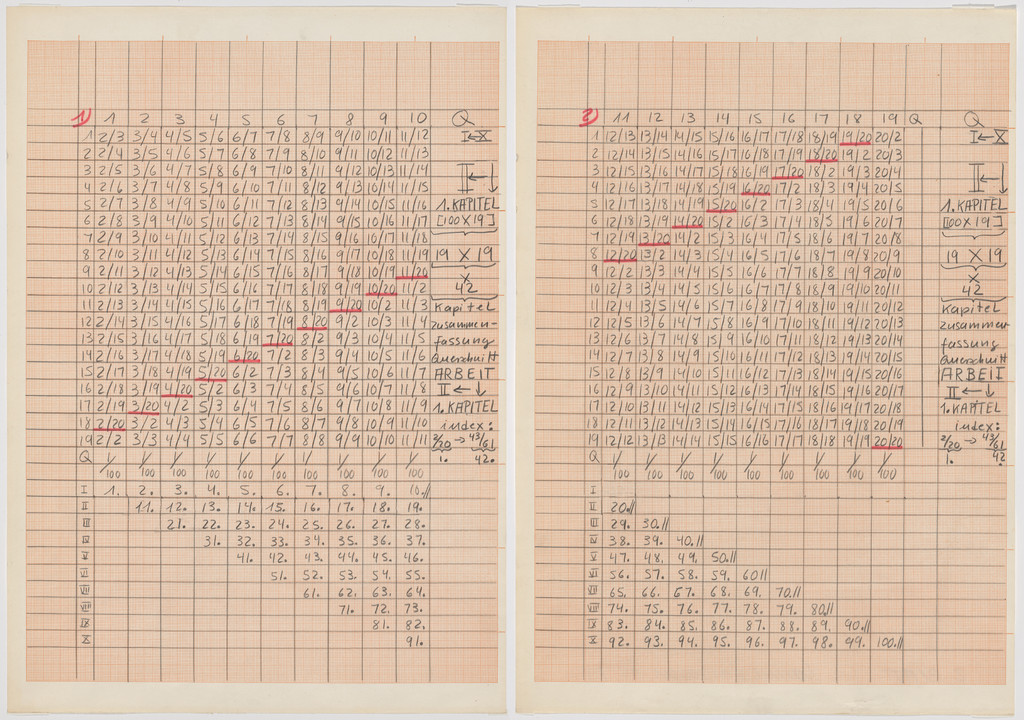 1) 1 2 3 4 5 6 7 8 9 10 Q
1 2/3 3/4 4/5 5/6 6/7 7/8 8/9 9/10 10/11 11/12 I←X
2 2/4 3/5 4/6 5/7 6/8 7/9 8/10 9/11 10/12 11/13
3 2/5 3/6 4/7 5/8 6/9 7/10 8/11 9/12 10/13 11/14 II←↓
4 2/6 3/7 4/8 5/9 6/10 7/11 8/12 9/13 10/14 11/15
5 2/7 3/8 4/9 5/10 6/11 7/12 8/13 9/14 10/15 11/16 1. KAPITEL
6 2/8 3/9 4/10 5/11 6/12 7/13 8/14 9/15 10/16 11/17 [100X19]
7 2/9 3/10 4/11 5/12 6/13 7/14 8/15 9/16 10/17 11/18
8 2/10 3/11 4/12 5/13 6/14 7/15 8/16 9/17 10/18 11/19 19 X 19
9 2/11 3/12 4/13 5/14 6/15 7/16 8/17 9/18 10/19 11/20 X
10 2/12 3/13 4/14 5/15 6/16 7/17 8/18 9/19 10/20 11/2 42
11 2/13 3/14 4/15 5/16 6/17 7/18 8/19 9/20 10/2 11/3 Kapitel
12 2/14 3/15 4/16 5/17 6/18 7/19 8/20 9/2 10/3 11/4 zusammen-
13 2/15 3/16 4/17 5/18 6/19 7/20 8/2 9/3 10/4 11/5 fassung
14 2/16 3/17 4/18 5/19 6/20 7/2 8/3 9/4 10/5 11/6 Querschnitt
15 2/17 3/18 4/19 5/20 6/2 7/3 8/4 9/5 10/6 11/7 ARBEIT
16 2/18 3/19 4/20 5/2 6/3 7/4 8/5 9/6 10/7 11/8 II←↓
17 2/19 3/20 4/2 5/3 6/4 7/5 8/6 9/7 10/8 11/9 1. KAPITEL
18 2/20 3/2 4/3 5/4 6/5 7/6 8/7 9/8 10/9 11/10 index:
19 2/2 3/3 4/4 5/5 6/6 7/7 8/8 9/9 10/10 11/11 2/20 → 43/61
Q 1/100 1/100 1/100 1/100 1/100 1/100 1/100 1/100 1/100 1/100 1. 42.
I 1. 2. 3. 4. 5. 6. 7. 8. 9. 10.//
II 11. 12. 13. 14. 15. 16. 17. 18. 19.
III 21. 22. 23. 24. 25. 26. 27. 28.
IV 31. 32. 33. 34. 35. 36. 37.
V 41. 42. 43. 44. 45. 46.
VI 51. 52. 53. 54. 55.
VII 61. 62. 63. 64.
VIII 71. 72. 73.
IX 81. 82.
X 91.
2) 11 12 13 14 15 16 17 18 19 Q Q
1 12/13 13/14 14/15 15/16 16/17 17/18 18/19 19/20 20/2 I←X
2 12/14 13/15 14/16 15/17 16/18 17/19 18/20 19/2 20/3
3 12/15 13/16 14/17 15/18 16/19 17/20 18/2 19/3 20/4 II←↓
4 12/16 13/17 14/18 15/19 16/20 17/2 18/3 19/4 20/5
5 12/17 13/18 14/19 15/20 16/2 17/3 18/4 19/5 20/6 1. KAPITEL
6 12/18 13/19 14/20 15/2 16/3 17/4 18/5 19/6 20/7 [100X19]
7 12/19 13/20 14/2 15/3 16/4 17/5 18/6 19/7 20/8
8 12/20 13/2 14/3 15/4 16/5 17/6 18/7 19/8 20/9 19 X 19
9 12/2 13/3 14/4 15/5 16/6 17/7 18/8 19/9 20/10 X
10 12/3 13/4 14/5 15/6 16/7 17/8 18/9 19/10 20/11 42
11 12/4 13/5 14/6 15/7 16/8 17/9 18/10 19/11 20/12 Kapitel
12 12/5 13/6 14/7 15/8 16/9 17/10 18/11 19/12 20/13 zusammen-
13 12/6 13/7 14/8 15/9 16/10 17/11 18/12 19/13 20/14 fassung
14 12/7 13/8 14/9 15/10 16/11 17/12 18/13 19/14 20/15 Querschnitt
15 12/8 13/9 14/10 15/11 16/12 17/13 18/14 19/15 20/16 ARBEIT
16 12/9 13/10 14/11 15/12 16/13 17/14 18/15 19/16 20/17 II←↓
17 12/10 13/11 14/12 15/13 16/14 17/15 18/16 19/17 20/18 1. KAPITEL
18 12/11 13/12 14/13 15/14 16/15 17/16 18/17 19/18 20/19 index:
19 12/12 13/13 14/14 15/15 16/16 17/17 18/18 19/19 20/20 2/20 → 43/61
Q 1/100 1/100 1/100 1/100 1/100 1/100 1/100 1/100 1/100 1. 42
I
II 20.//
III 29. 30.//
IV 38. 39. 40.//
V 47. 48. 49. 50.//
VI 56. 57. 58. 59. 60//
VII 65. 66. 67. 68. 69. 70.//
VIII 74. 75. 76. 77. 78. 79. 80.//
IX 83. 84. 85. 86. 87. 88. 89. 90.//
X 92. 93. 94. 95. 96. 97. 98. 99. 100.//